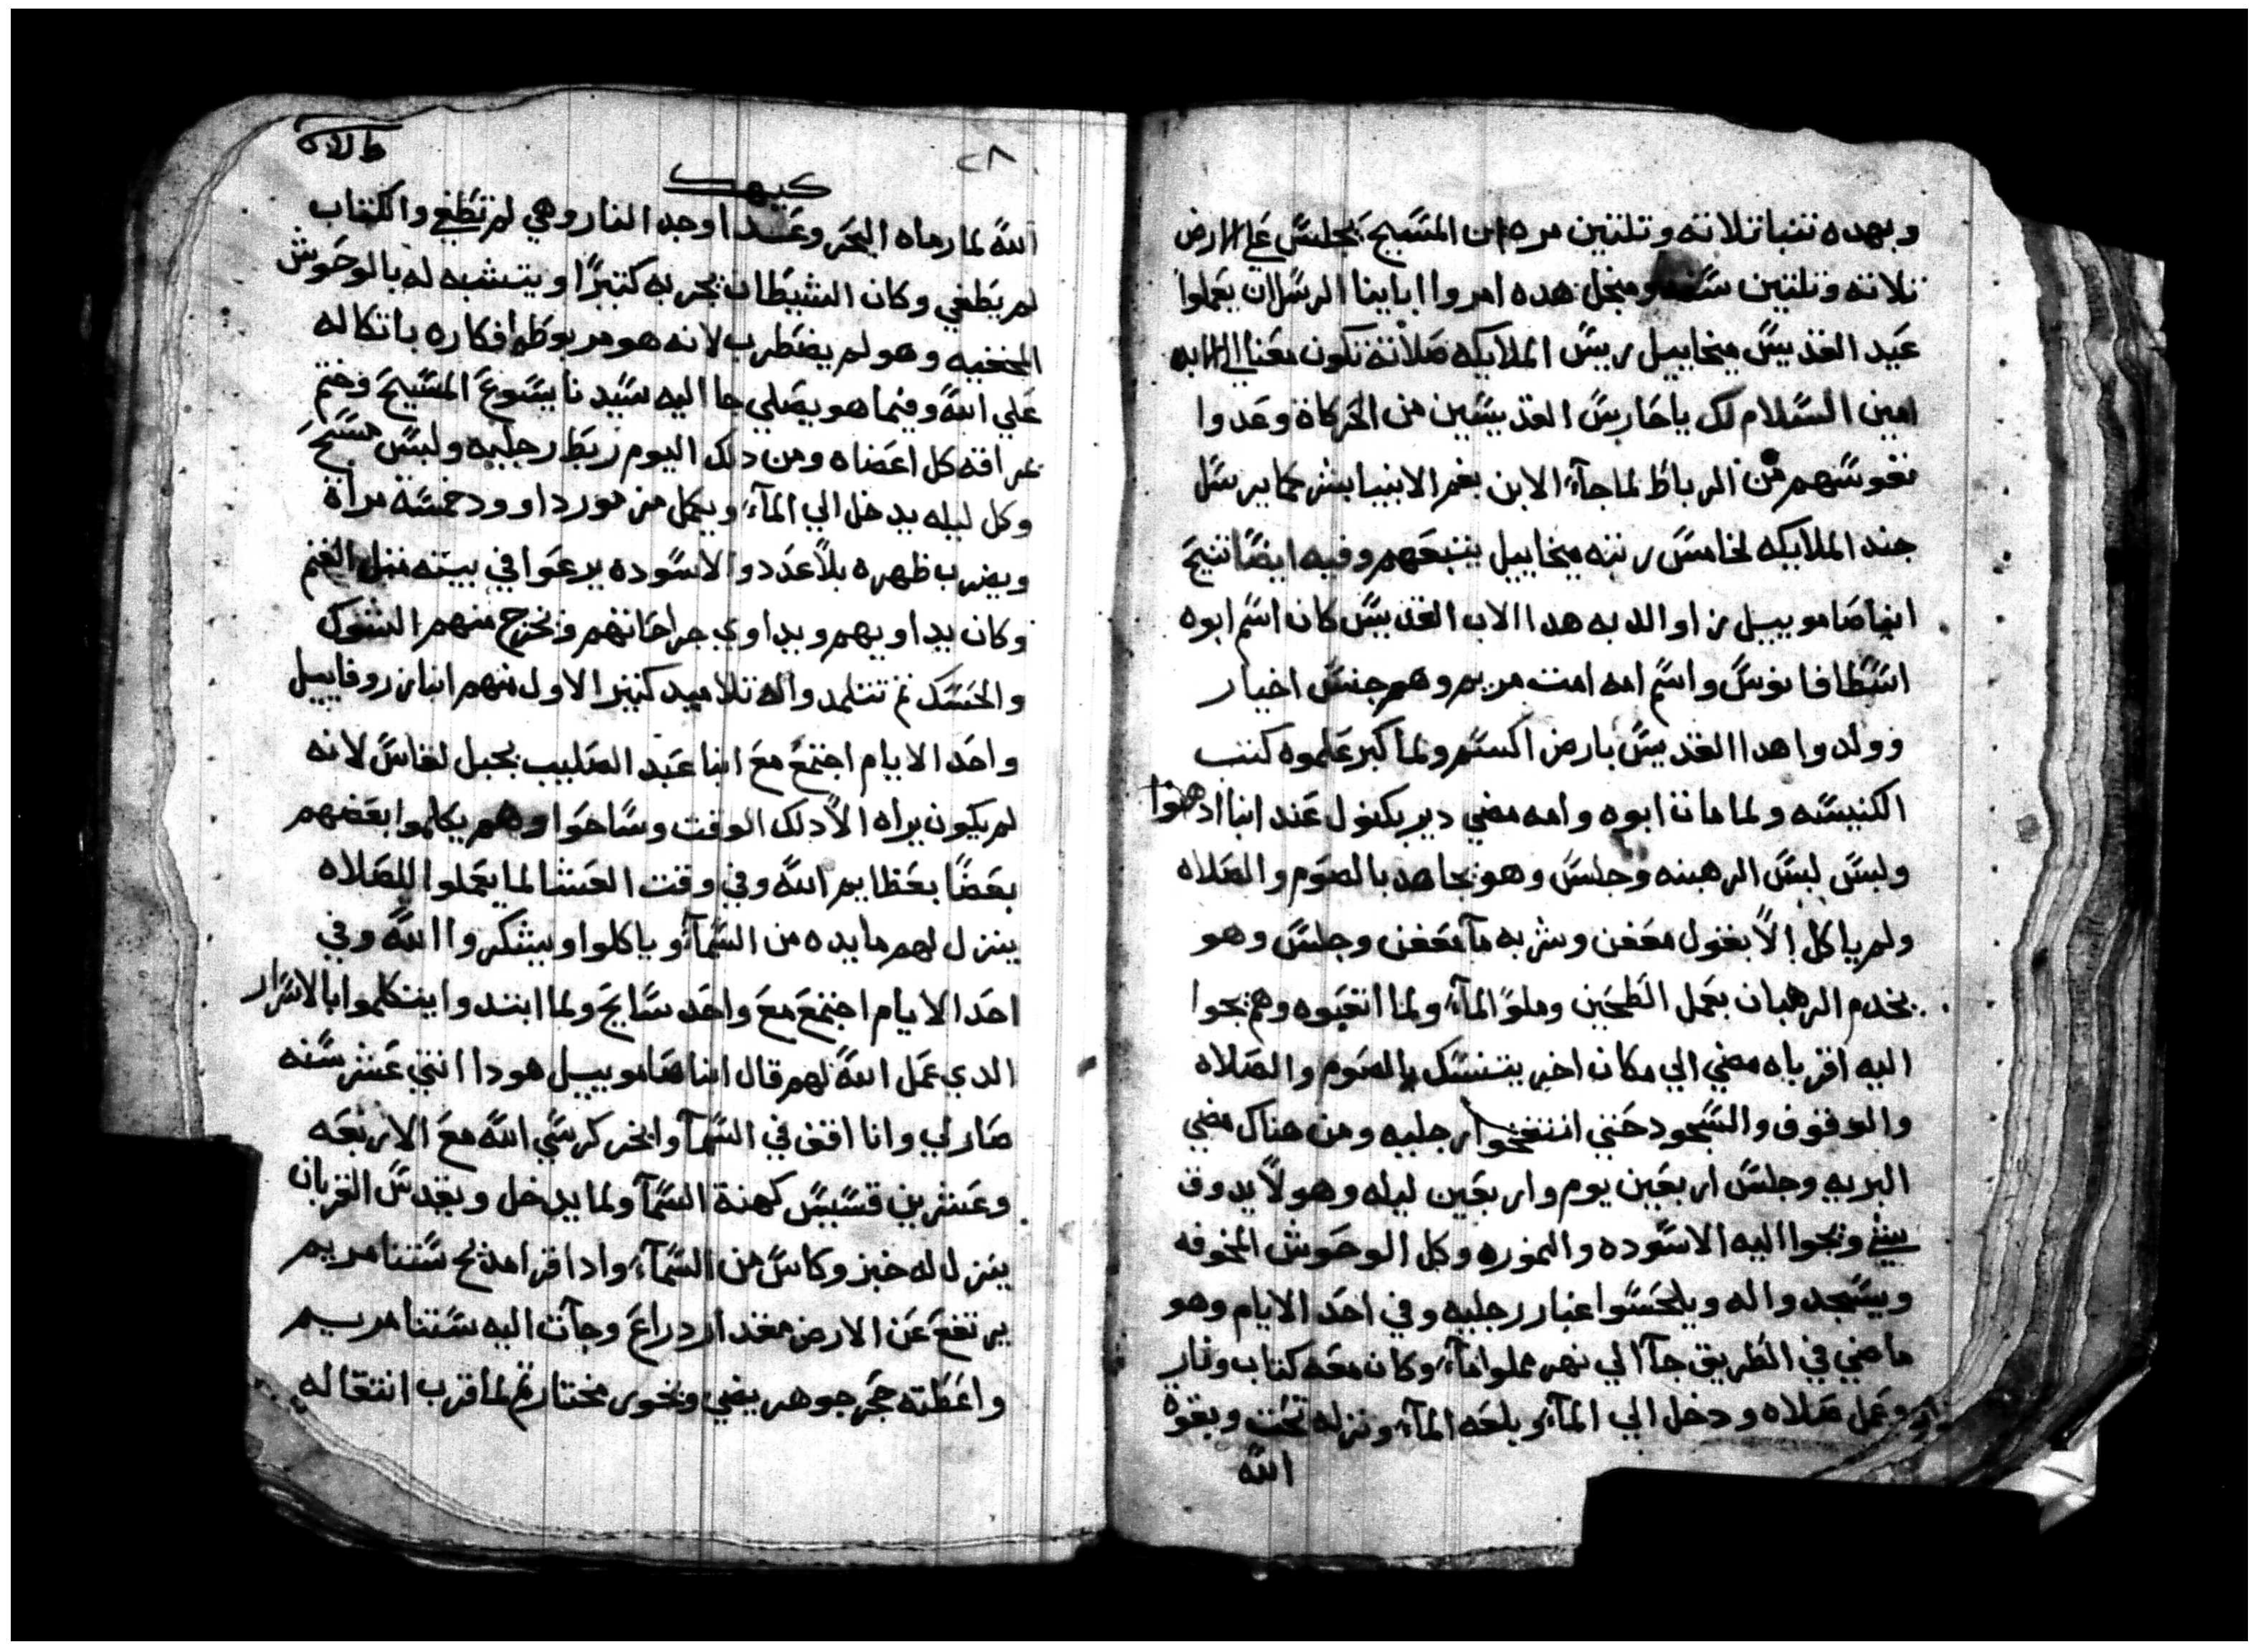 وبهده تنباتلاته وتلتين مره ان المسيح يجلس على الارض
تلاته وتلتين سنه ومنجل هده امروا ابابنا الرسل ان يعملوا
عيد القديس ميخاييل رييس الملايكه صلاته تكون معنا الى الابد
امين السلام لك ياحارس القديسين من الحركاة وعدوا
نفوسهم من الرباط لما جآء الابن بغم الانبيا بشر كما يرسل
جند الملايكه لخامس رتبه ميخاييل يتبعهم وفيه ايضا تنيح
انباصامويىل زاوالدبه هدا الاب القديس كان اسم ابوه
اسطافانوس واسم امه امت مريم وهم جنس اخيار
وولدوا هدا القديس بارض اكسم ولما كبر علموه كتب
الكنيسه ولما مات ابوه وامه مضي دير بكنول عند انبا ادهنوا
ولبس لبس الرهبنه وجلس وهو يجاهد بالصوم والصلاه
ولم ياكل الا بقول معفن وشربه مآ معفن وجلس وهو
يخدم الرهبان بعمل الطحين وملو المآء ولما اتعبوه وهم يجوا
اليه اقرباه مضي الي مكان اخر يتنسك بالصوم والصلاه
والوقوف والسجود حتي انتفخوا رجليه ومن هناك مضي
البريه وجلس اربعين يوم واربعين ليله وهو لا يدوق
شي ويجوا اليه الاسوده والنموره وكل الوحوش المخوفه
ويسجدوا له ويلحسوا غبار رجليه وفي احد الايام وهو
ماضي في الطريق جآ الي نهر مملوا مآء وكان معه كتاب ونار
وعمل صلاه ودخل الي المآء وبلعه المآء ونزله تحت وبقوه
الله
٢٨
كيهك
الله لما رماه البحر وعند اوجد النار وهي لم تطفي والكتاب
لم يطفي وكان الشيطان يجربه كتيرا ويتشبه له بالوحوش
المخفيه وهو لم يضطرب لانه هو مربوطه افكاره باتكاله
علي الله وفيما هو يصلي جا اليه سيدنا يسوع المسيح وختم
عرافه كل اعضاه ومن دلك اليوم ربط رجليه ولبس مسح
وكل ليله يدخل الي المآء ويكمل مزمور داوود خمسة مراة
ويضرب ظهره بلا عدد والاسوده يرعوا في بيته متل الغنم
وكان يداويهم ويداوي جراحاتهم ويخرج منهم الشوك
والحسك تم تتلمدوا له تلاميد كتير الاول منهم انبا زروفاييل
واحد الايام اجتمع مع انبا عبد الصليب بجبل لفاس لانه
لم يكون يراه الا دلك الوقت وساحوا وهم يكلموا بعضهم
بعضا بعظايم الله وفي وقت العشا لما يعملوا للصلاه
ينزل لهم مايده من السمآء وياكلوا ويشكروا الله وفي
احد الايام اجتمع مع واحد سايح ولما ابتدوا يتكلموا بالاسرار
الدي عمل الله لهم قال انبا صامويىل هودا اتني عشر سنه
صار لي وانا اقف في السمآ وابخر كرسي الله مع الاربعه
وعشرين قسيس كهنة السمآ ولما يدخل ويقدس القربان
ينزل له خبز وكاس من السمآء وادا قرا مديح ستنا مريم
يرتفع عن الارض مقدار دراع وجآت اليه ستنا مريم
واعطته حجر جوهر يضي وبخور مختار تم لما قرب انتقاله